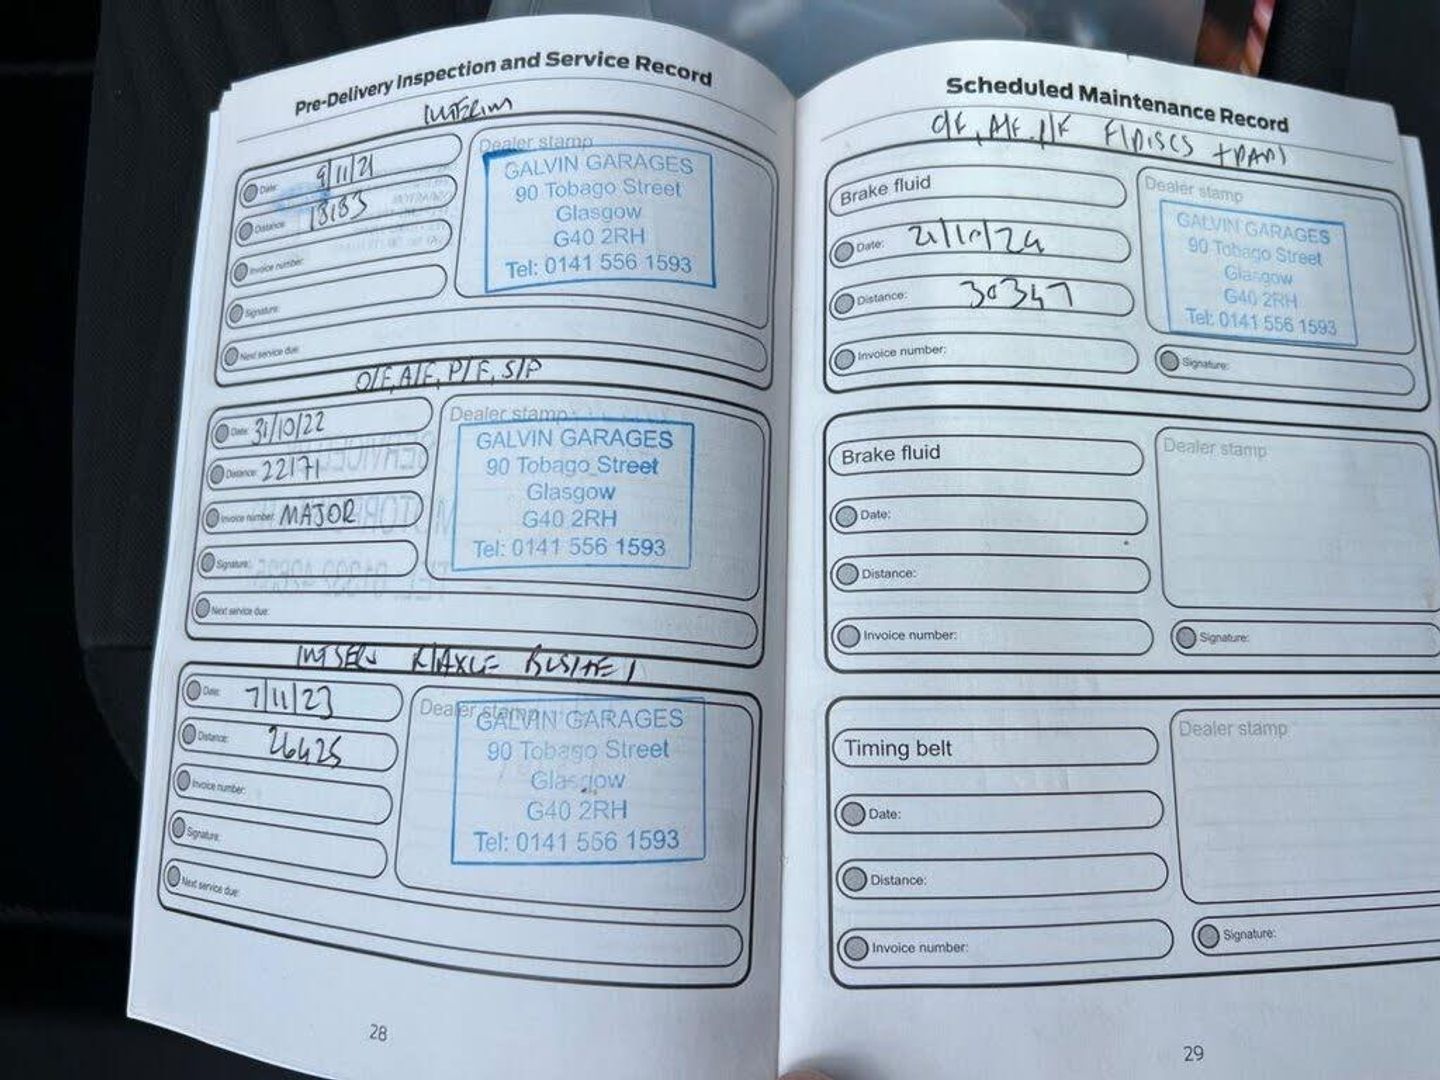 Pre-Delivery Inspection and Service Record
INTERIM
Date: 9/11/21
Distance: 18183
Invoice number:
Signature:
Next service due:
Dealer stamp
GALVIN GARAGES
90 Tobago Street
Glasgow
G40 2RH
Tel: 0141 556 1593
O/F, A/F, P/F, S/P
Date: 31/10/22
Distance: 22171
Invoice number: MAJOR
Signature:
Next service due:
Dealer stamp
GALVIN GARAGES
90 Tobago Street
Glasgow
G40 2RH
Tel: 0141 556 1593
INT SERV R/AXLE
Date: 7/11/23
Distance: 26425
Invoice number:
Signature:
Next service due:
Dealer stamp
GALVIN GARAGES
90 Tobago Street
Glasgow
G40 2RH
Tel: 0141 556 1593
28
Scheduled Maintenance Record
O/F, A/F, P/F F/DISCS + PADS
Brake fluid
Date: 21/10/24
Distance: 30347
Invoice number:
Dealer stamp
GALVIN GARAGES
90 Tobago Street
Glasgow
G40 2RH
Tel: 0141 556 1593
Signature:
Brake fluid
Date:
Distance:
Invoice number:
Dealer stamp
Signature:
Timing belt
Date:
Distance:
Invoice number:
Dealer stamp
Signature:
29